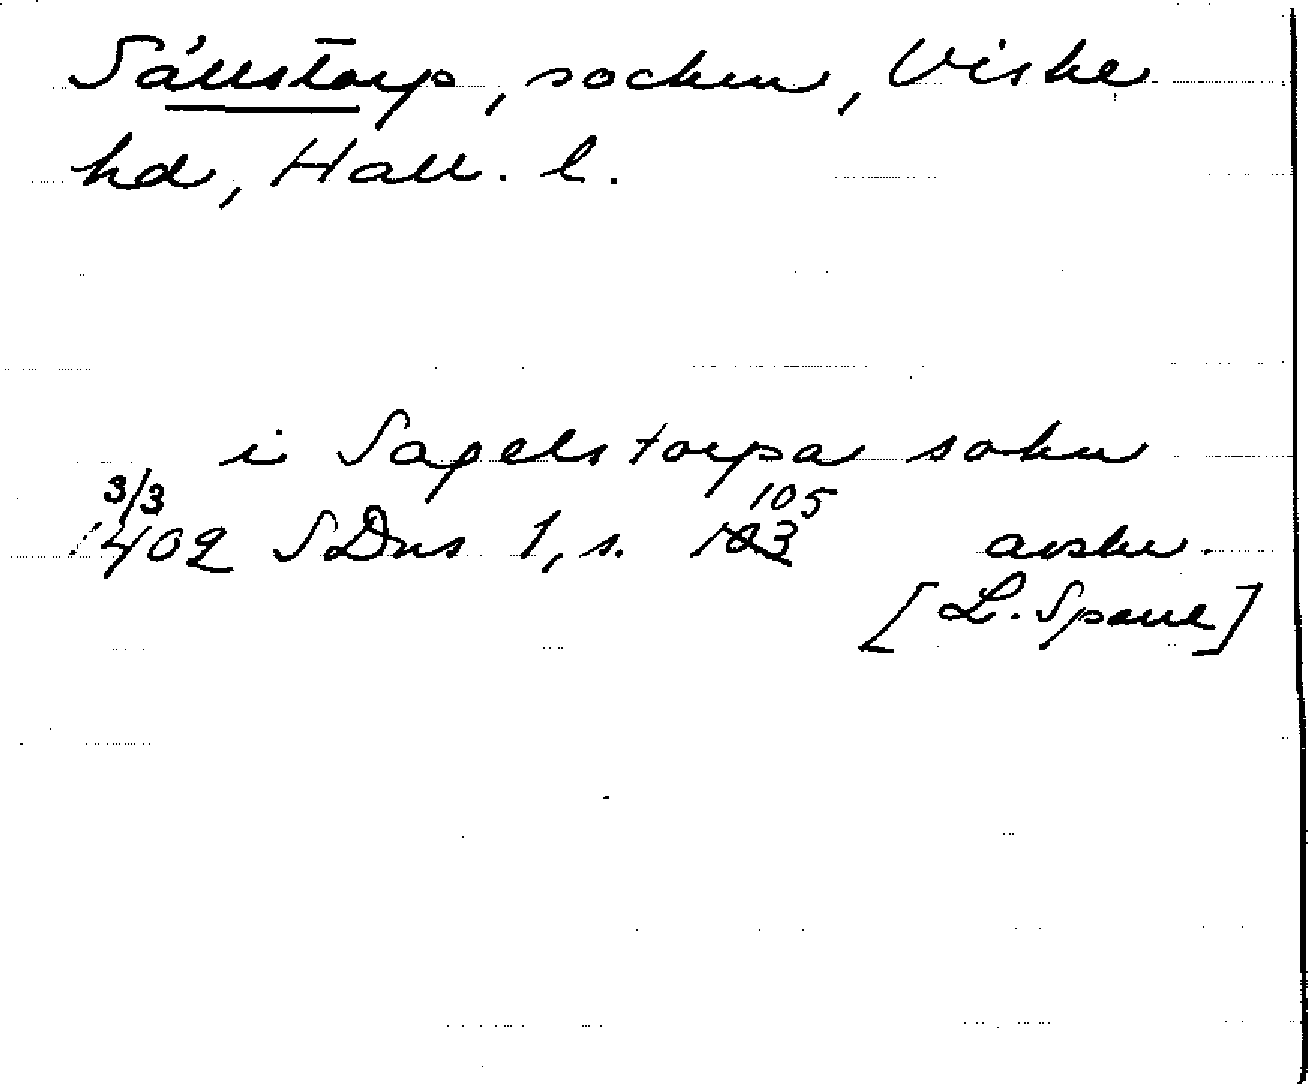 Sällstorp, socken, Viske
hd, Hall. l.
i Sagelstorpa sokn
3/3 105
1402 SDns 1, s. 103 avskr.
[L. Sparre]